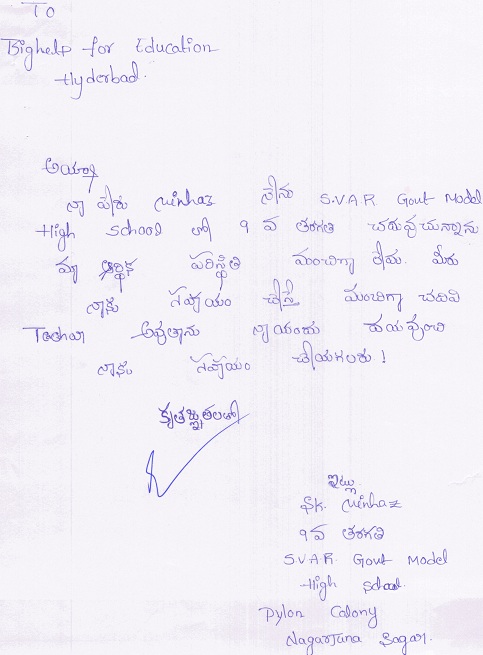 To
Bighelp for Education
Hyderbad.
అయ్యా
నా పేరు Minhaz నేను S.V.A.R. Govt Model
High school లో 9 వ తరగతి చదువుచున్నాను
మా ఆర్థిక పరిస్థితి మంచిగా లేదు. మీరు
నాకు సహాయం చేస్తే మంచిగా చదివి
Teacher అవుతాను నా యందు దయవుంచి
నాకు సహాయం చేయగలరు!
కృతజ్ఞతలతో
ఇట్లు
SK. Minhaz
9వ తరగతి
S.V.A.R. Govt Model
High School
Pylon Colony
Nagarjuna Sagar.